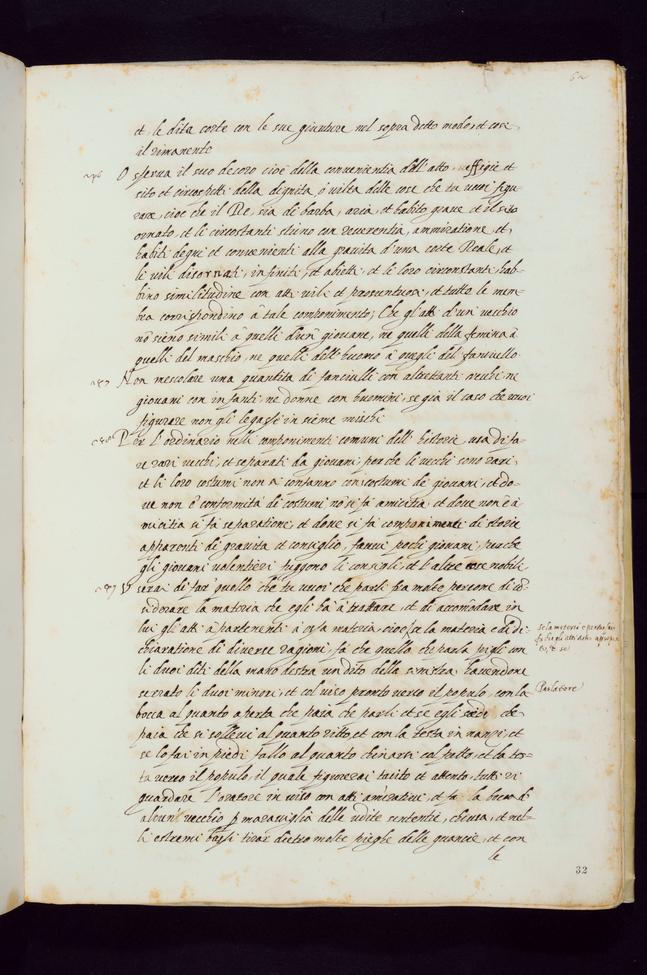 et le dita corte con le sue giunture nel sopra detto modo, et cosi
il rimanente
Osserva il suo decoro cioè della convenientia dell'atto, effigie et
sito et circospetti della dignita ò viltà delle cose che tu vuoi figu-
rare, cioè che il Re, sia di barba, aria, et habito grave et il sito
ornato, et li circostanti stieno con reverentia, ammiratione, et
habiti degni et convenienti alla gravita d'una corte Reale, et
li vili disornati, infiniti, et abietti, et li loro circonstanti hab-
bino similitudine con atti vili et prosuntuosi, et tutte le mem-
bra corrispondino à tale componimento; Che gl'atti d'un vecchio
nō sieno simili à quelli d'un giovane, ne quelli della femina à
quelli del maschio, ne quelli dell'huomo à quegli del fanciullo.
Non mescolare una quantita di fanciulli con altrettanti vecchi ne
giovani con infanti ne donne con huomini se già il caso che vuoi
figurare non gli legasse insieme mischi
Per l'ordinario nelli componimenti comuni dell' historie, usa di fa-
re rari vecchi, et separati da giovani, perche li vecchi sono rari,
et li loro costumi non si confanno con costumi de giovani, et do-
ve non è conformità di costumi nō si fa amicitia, et dove non è a-
micitia si fà separatione, et dove si fà componimenti di storie
apparenti di gravita et consiglio, favvi pochi giovani, perche
gli giovani volentieri fuggono li consigli, et l'altre cose nobili
Userai di far' quello che tu vuoi che parli fra molte persone di cō-
siderare la materia che egli hà à trattare, et di accomodare in
lui gli atti apartenenti à essa materia, cioè se la materia è di di-
chiaratione di diverse ragioni, fà che quello che parla pigli con
li duoi diti della mano destra un dito della sinistra havendone
serrato li duoi minori, et col viso pronto verso il populo, con la
bocca al quanto aperta che paia che parli et se egli siede che
paia che si sollevi al quanto ritto, et con la testa in nanzi, et
se lo fai in piedi fallo al quanto chinarsi col petto, et la tes-
ta verso il populo il quale figurerai tacito et attento, tutti ri
guardare l'oratore in viso con atti amirativi, et fa la bocca di
alcun' vecchio p maraviglia delle udite sententie, chiusa, et nel-
li estremi bassi tirar dietro molte pieghe delle guancie, et con
le
Parlatore
32